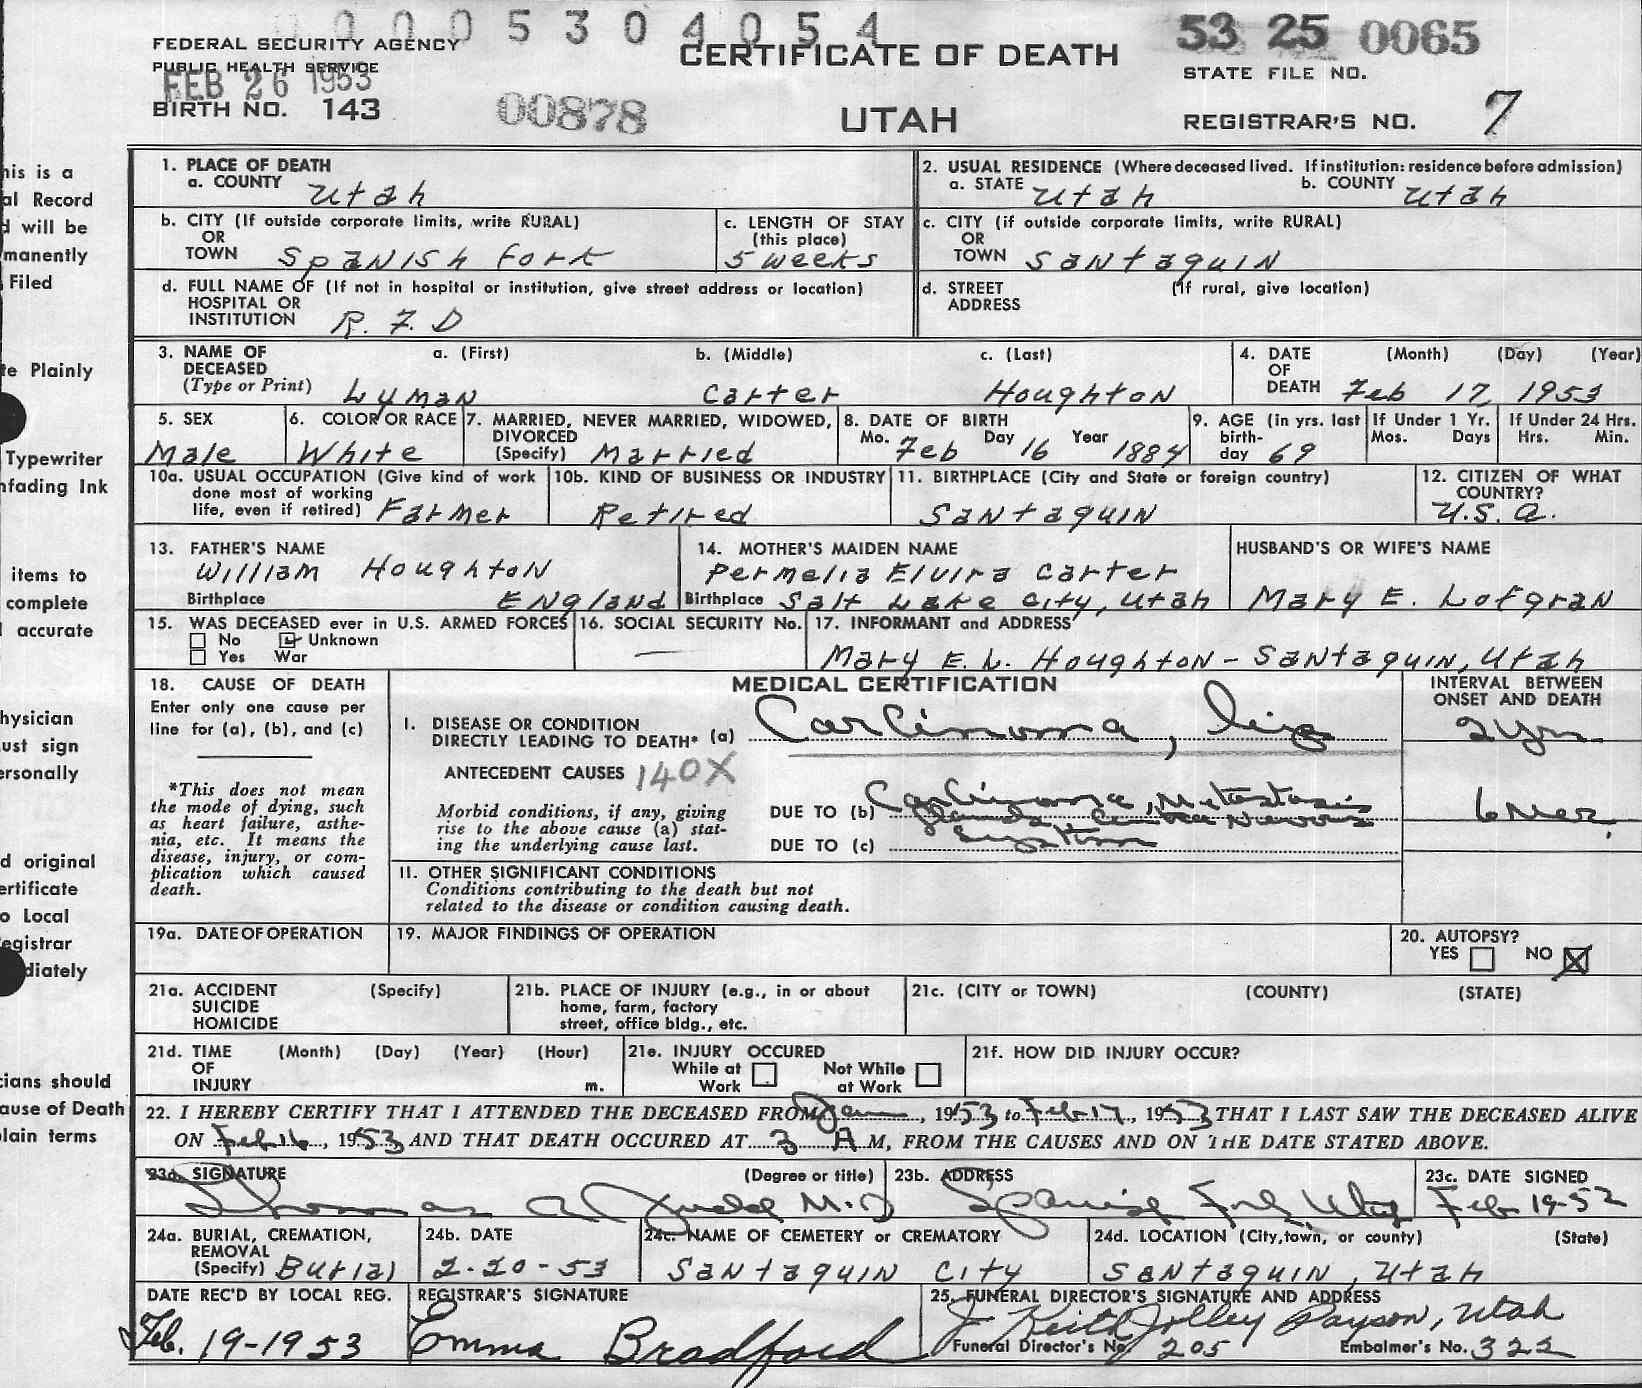 0000 5 3 0 4 0 5 4
53 25 0065
FEDERAL SECURITY AGENCY
PUBLIC HEALTH SERVICE
FEB 26 1953
BIRTH NO. 143
00878
CERTIFICATE OF DEATH
UTAH
STATE FILE NO.
REGISTRAR'S NO. 7
his is a
al Record
d will be
manently
Filed
te Plainly
Typewriter
nfading Ink
items to
complete
accurate
hysician
ust sign
ersonally
d original
ertificate
o Local
egistrar
diately
cians should
ause of Death
lain terms
1. PLACE OF DEATH
a. COUNTY Utah
2. USUAL RESIDENCE (Where deceased lived. If institution: residence before admission)
a. STATE Utah b. COUNTY Utah
b. CITY (If outside corporate limits, write RURAL)
OR
TOWN Spanish Fork
c. LENGTH OF STAY
(this place)
5 weeks
c. CITY (if outside corporate limits, write RURAL)
OR
TOWN Santaquin
d. FULL NAME OF (If not in hospital or institution, give street address or location)
HOSPITAL OR
INSTITUTION R.F.D
d. STREET (If rural, give location)
ADDRESS
3. NAME OF DECEASED
(Type or Print)
a. (First) b. (Middle) c. (Last)
Lyman Carter Houghton
4. DATE OF DEATH (Month) (Day) (Year)
Feb 17, 1953
5. SEX
Male
6. COLOR OR RACE
White
7. MARRIED, NEVER MARRIED, WIDOWED,
DIVORCED
(Specify) Married
8. DATE OF BIRTH
Mo. Feb Day 16 Year 1884
9. AGE (in yrs. last
birth-
day 69
If Under 1 Yr.
Mos. Days
If Under 24 Hrs.
Hrs. Min.
10a. USUAL OCCUPATION (Give kind of work
done most of working
life, even if retired) Farmer
10b. KIND OF BUSINESS OR INDUSTRY
Retired
11. BIRTHPLACE (City and State or foreign country)
Santaquin
12. CITIZEN OF WHAT
COUNTRY?
U.S.A.
13. FATHER'S NAME
William Houghton
Birthplace England
14. MOTHER'S MAIDEN NAME
Permelia Elvira Carter
Birthplace Salt Lake City, Utah
HUSBAND'S OR WIFE'S NAME
Mary E. Lofgran
15. WAS DECEASED ever in U.S. ARMED FORCES
No Unknown
Yes War
16. SOCIAL SECURITY No.
—
17. INFORMANT and ADDRESS
Mary E. L. Houghton - Santaquin, Utah
18. CAUSE OF DEATH
Enter only one cause per
line for (a), (b), and (c)
*This does not mean
the mode of dying, such
as heart failure, asthe-
nia, etc. It means the
disease, injury, or com-
plication which caused
death.
MEDICAL CERTIFICATION
INTERVAL BETWEEN
ONSET AND DEATH
I. DISEASE OR CONDITION
DIRECTLY LEADING TO DEATH* (a) Carcinoma, lip
2 yrs.
ANTECEDENT CAUSES 140X
Morbid conditions, if any, giving
rise to the above cause (a) stat-
ing the underlying cause last.
DUE TO (b) Carcinoma, Metastasis
Glands, Nervous
DUE TO (c) System
II. OTHER SIGNIFICANT CONDITIONS
Conditions contributing to the death but not
related to the disease or condition causing death.
19a. DATE OF OPERATION
19. MAJOR FINDINGS OF OPERATION
20. AUTOPSY?
YES NO X
21a. ACCIDENT (Specify)
SUICIDE
HOMICIDE
21b. PLACE OF INJURY (e.g., in or about
home, farm, factory
street, office bldg., etc.
21c. (CITY or TOWN) (COUNTY) (STATE)
21d. TIME (Month) (Day) (Year) (Hour)
OF
INJURY m.
21e. INJURY OCCURED
While at Work Not While at Work
21f. HOW DID INJURY OCCUR?
22. I HEREBY CERTIFY THAT I ATTENDED THE DECEASED FROM Jan, 1953 to Feb 17, 1953 THAT I LAST SAW THE DECEASED ALIVE
ON Feb 16, 1953 AND THAT DEATH OCCURED AT 3 A M, FROM THE CAUSES AND ON THE DATE STATED ABOVE.
23a. SIGNATURE (Degree or title)
Thomas A Judd M.D
23b. ADDRESS
Spanish Fork, Utah
23c. DATE SIGNED
Feb 19-52
24a. BURIAL, CREMATION,
REMOVAL
(Specify) Burial
24b. DATE
2-20-53
24c. NAME OF CEMETERY or CREMATORY
Santaquin City
24d. LOCATION (City, town, or county) (State)
Santaquin, Utah
DATE REC'D BY LOCAL REG.
Feb. 19-1953
REGISTRAR'S SIGNATURE
Emma Bradford
25. FUNERAL DIRECTOR'S SIGNATURE AND ADDRESS
J. Keith Jolley Payson, Utah
Funeral Director's No. 205 Embalmer's No. 322